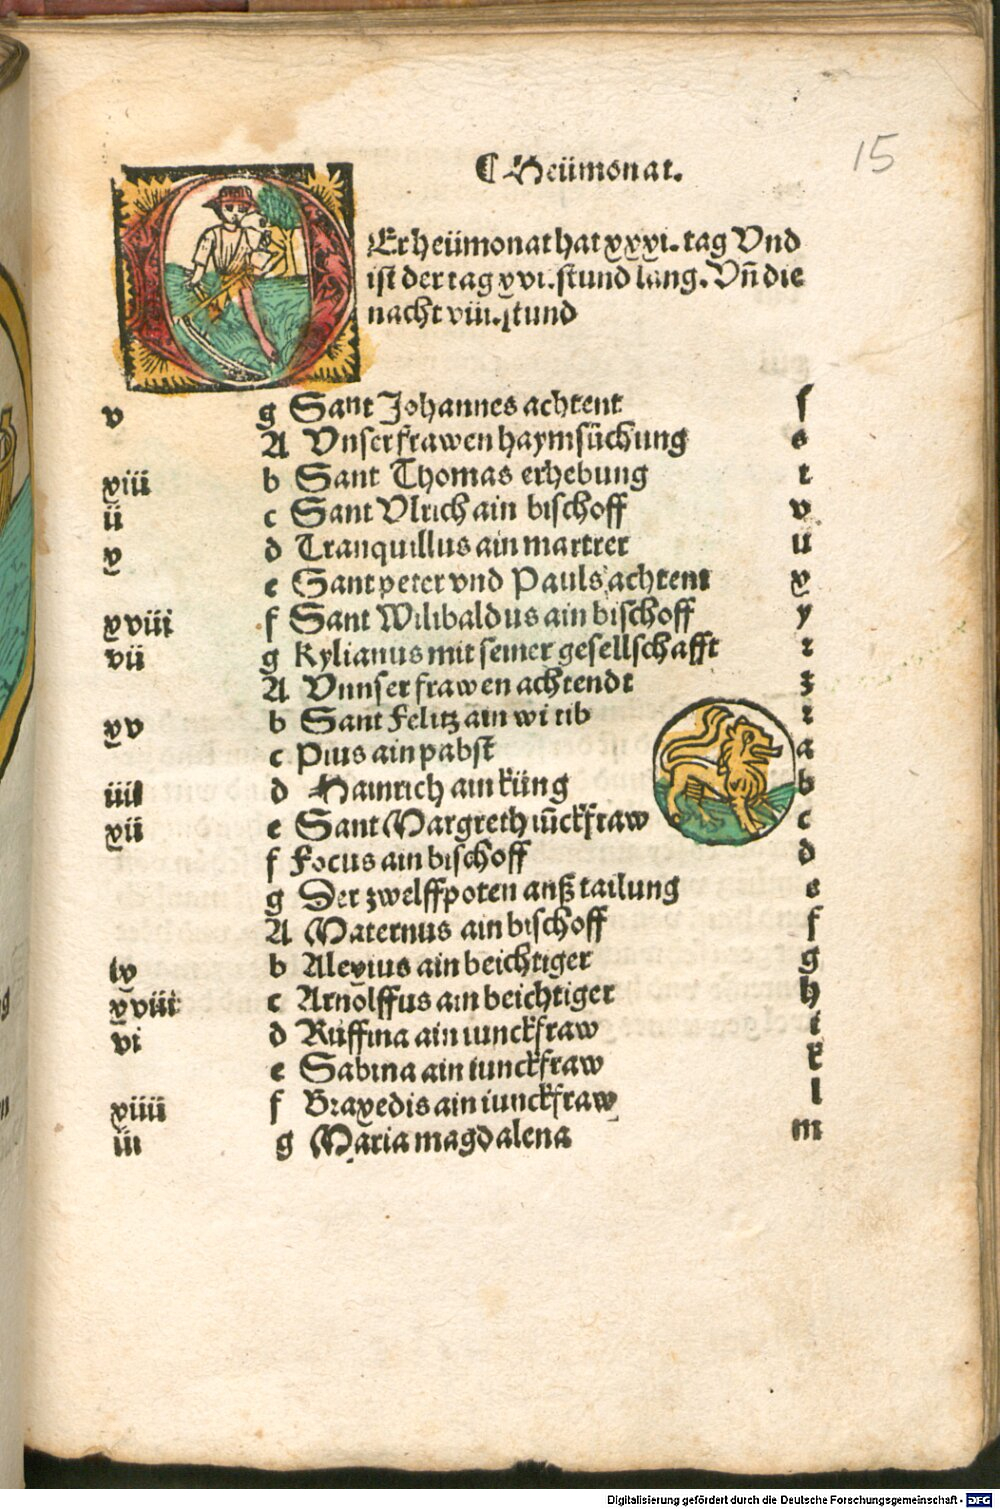 15
⸿ Heümonat.
DEr heümonat hat xxxi. tag Vnd
ist der tag xvi. stund lang. Vn̄ die
nacht viii. stund
v g Sant Johannes achtent f
A Vnser frawen haymsüchung s
xiii b Sant Thomas erhebung t
ii c Sant Vlrich ain bischoff v
x d Tranquillus ain martrer u
e Sant peter vnd Pauls achtent x
xviii f Sant Wilibaldus ain bischoff y
vii g Kylianus mit seiner gesellschafft z
A Vnnser frawen achtendt ꝫ
xv b Sant Felitz ain witib z
c Pius ain pabst a
iiii d Hainrich ain küng b
xii e Sant Margreth iūckfraw c
f Focus ain bischoff d
g Der zwelffpoten auß tailung e
A Maternus ain bischoff f
ix b Alexius ain beichtiger g
xviii c Arnolffus ain beichtiger h
vi d Ruffina ain iunckfraw i
e Sabina ain iunckfraw k
xiiii f Braxedis ain iunckfraw l
iii g Maria magdalena m
Digitalisierung gefördert durch die Deutsche Forschungsgemeinschaft - DFG